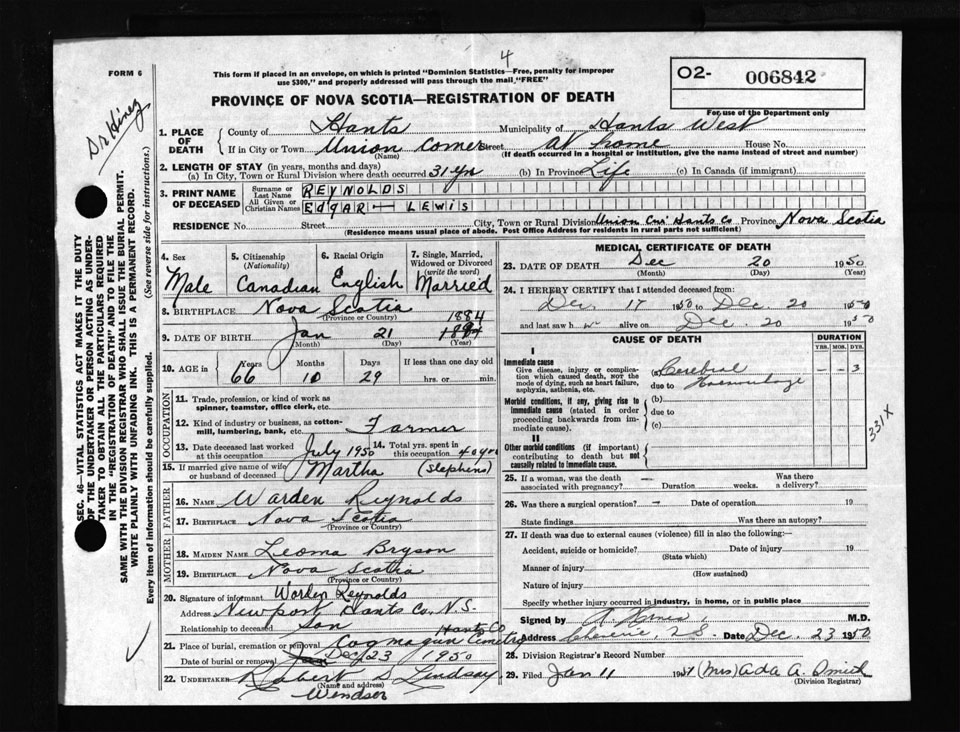 4
FORM 6
This form if placed in an envelope, on which is printed "Dominion Statistics—Free, penalty for improper
use $300," and properly addressed will pass through the mail "FREE"
O2- 006842
For use of the Department only
PROVINCE OF NOVA SCOTIA—REGISTRATION OF DEATH
Dr Hines
1. PLACE OF DEATH
County of Hants Municipality of Hants West
If in City or Town Union Corner Street At home House No.
(Name) (If death occurred in a hospital or institution, give the name instead of street and number)
2. LENGTH OF STAY (in years, months and days)
(a) In City, Town or Rural Division where death occurred 31 yrs (b) In Province Life (c) In Canada (if immigrant)
3. PRINT NAME OF DECEASED
Surname or Last Name REYNOLDS
All Given or Christian Names EdgAR — LEWIS
RESIDENCE No. Street City, Town or Rural Division Union Cnr Hants Co Province Nova Scotia
(Residence means usual place of abode. Post Office Address for residents in rural parts not sufficient)
4. Sex Male
5. Citizenship (Nationality) Canadian
6. Racial Origin English
7. Single, Married, Widowed or Divorced (write the word) Married
8. BIRTHPLACE Nova Scotia
(Province or Country)
1884
9. DATE OF BIRTH Jan 21
(Month) (Day) (Year)
10. AGE in Years Months Days If less than one day old
66 10 29 hrs. or min.
OCCUPATION
11. Trade, profession, or kind of work as
spinner, teamster, office clerk, etc.
12. Kind of industry or business, as cotton-
mill, lumbering, bank, etc. Farmer
13. Date deceased last worked at this occupation July 1950
14. Total yrs. spent in this occupation 40 yrs
15. If married give name of wife or husband of deceased Martha (Stephens)
FATHER
16. NAME Warden Reynolds
17. BIRTHPLACE Nova Scotia
(Province or Country)
MOTHER
18. MAIDEN NAME Leoma Bryson
19. BIRTHPLACE Nova Scotia
(Province or Country)
20. Signature of informant Warden Reynolds
Address Newport Hants Co, N.S.
Relationship to deceased Son
Hants Co
21. Place of burial, cremation or removal Cogmagun Cemetry
Date of burial or removal Dec 23 1950
22. UNDERTAKER Robert D Lindsay
(Name and address)
Windsor
MEDICAL CERTIFICATE OF DEATH
23. DATE OF DEATH Dec 20 1950
(Month) (Day) (Year)
24. I HEREBY CERTIFY that I attended deceased from:
Dec. 17 1950 to Dec. 20 1950
and last saw h alive on Dec. 20 1950
CAUSE OF DEATH
DURATION
YRS. MOS. DYS.
I
Immediate cause
Give disease, injury or complica-
tion which caused death, not the
mode of dying, such as heart failure,
asphyxia, asthenia, etc.
(a) Cerebral — — 3
due to Haemorrhage
Morbid conditions, if any, giving rise to
immediate cause (stated in order
proceeding backwards from im-
mediate cause).
(b)
due to
(c)
331X
II
Other morbid conditions (if important)
contributing to death but not
causally related to immediate cause.
25. If a woman, was the death associated with pregnancy? — Duration weeks. Was there a delivery?
26. Was there a surgical operation? — Date of operation 19
State findings Was there an autopsy?
27. If death was due to external causes (violence) fill in also the following:—
Accident, suicide or homicide? Date of injury 19
(State which)
Manner of injury
(How sustained)
Nature of injury
Specify whether injury occurred in industry, in home, or in public place
Signed by M.D.
Address Date Dec. 23 1950
28. Division Registrar's Record Number
29. Filed Jan 11 1951 (Mrs) Ada A.
(Division Registrar)
SEC. 46—VITAL STATISTICS ACT MAKES IT THE DUTY
OF THE UNDERTAKER OR PERSON ACTING AS UNDER-
TAKER TO OBTAIN ALL THE PARTICULARS REQUIRED
IN THE "REGISTRATION OF DEATH" AND TO FILE THE
SAME WITH THE DIVISION REGISTRAR WHO SHALL ISSUE THE BURIAL PERMIT.
WRITE PLAINLY WITH UNFADING INK. THIS IS A PERMANENT RECORD.
Every item of information should be carefully supplied. (See reverse side for instructions.)